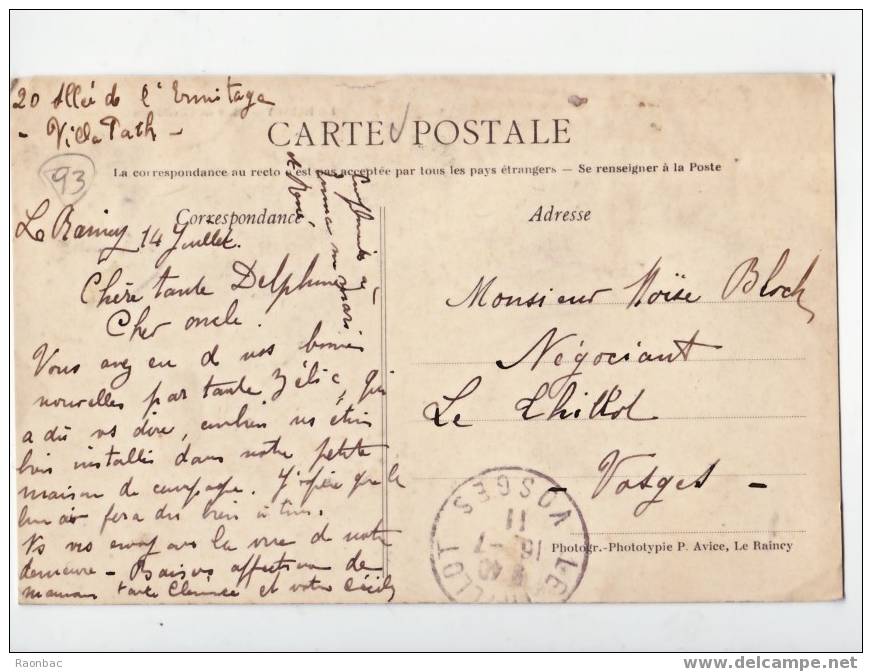 20 Allée de l'Ermitage
- Villa Path -
CARTE POSTALE
La correspondance au recto n'est pas acceptée par tous les pays étrangers — Se renseigner à la Poste
93
Correspondance
Adresse
Le Raincy 14 Juillet.
Chère tante Delphine
Cher oncle.
Vous avez eu de nos bonnes
nouvelles par tante Zélie, qui
a dû vs dire, combien ns étions
bien installés dans notre petite
maison de campagne. J'espère que le
bon air fera du bien à tous.
Ns vs envoyons la vue de notre
demeure - Baisers affectueux de
maman tante Clémence et votre Cécile
mon mari
Monsieur Moïse Bloch
Négociant
Le Thillot
- Vosges -
LE THILLOT
VOSGES
11
Photogr.-Phototypie P. Avice, Le Raincy
Raonbac
www.delcampe.net